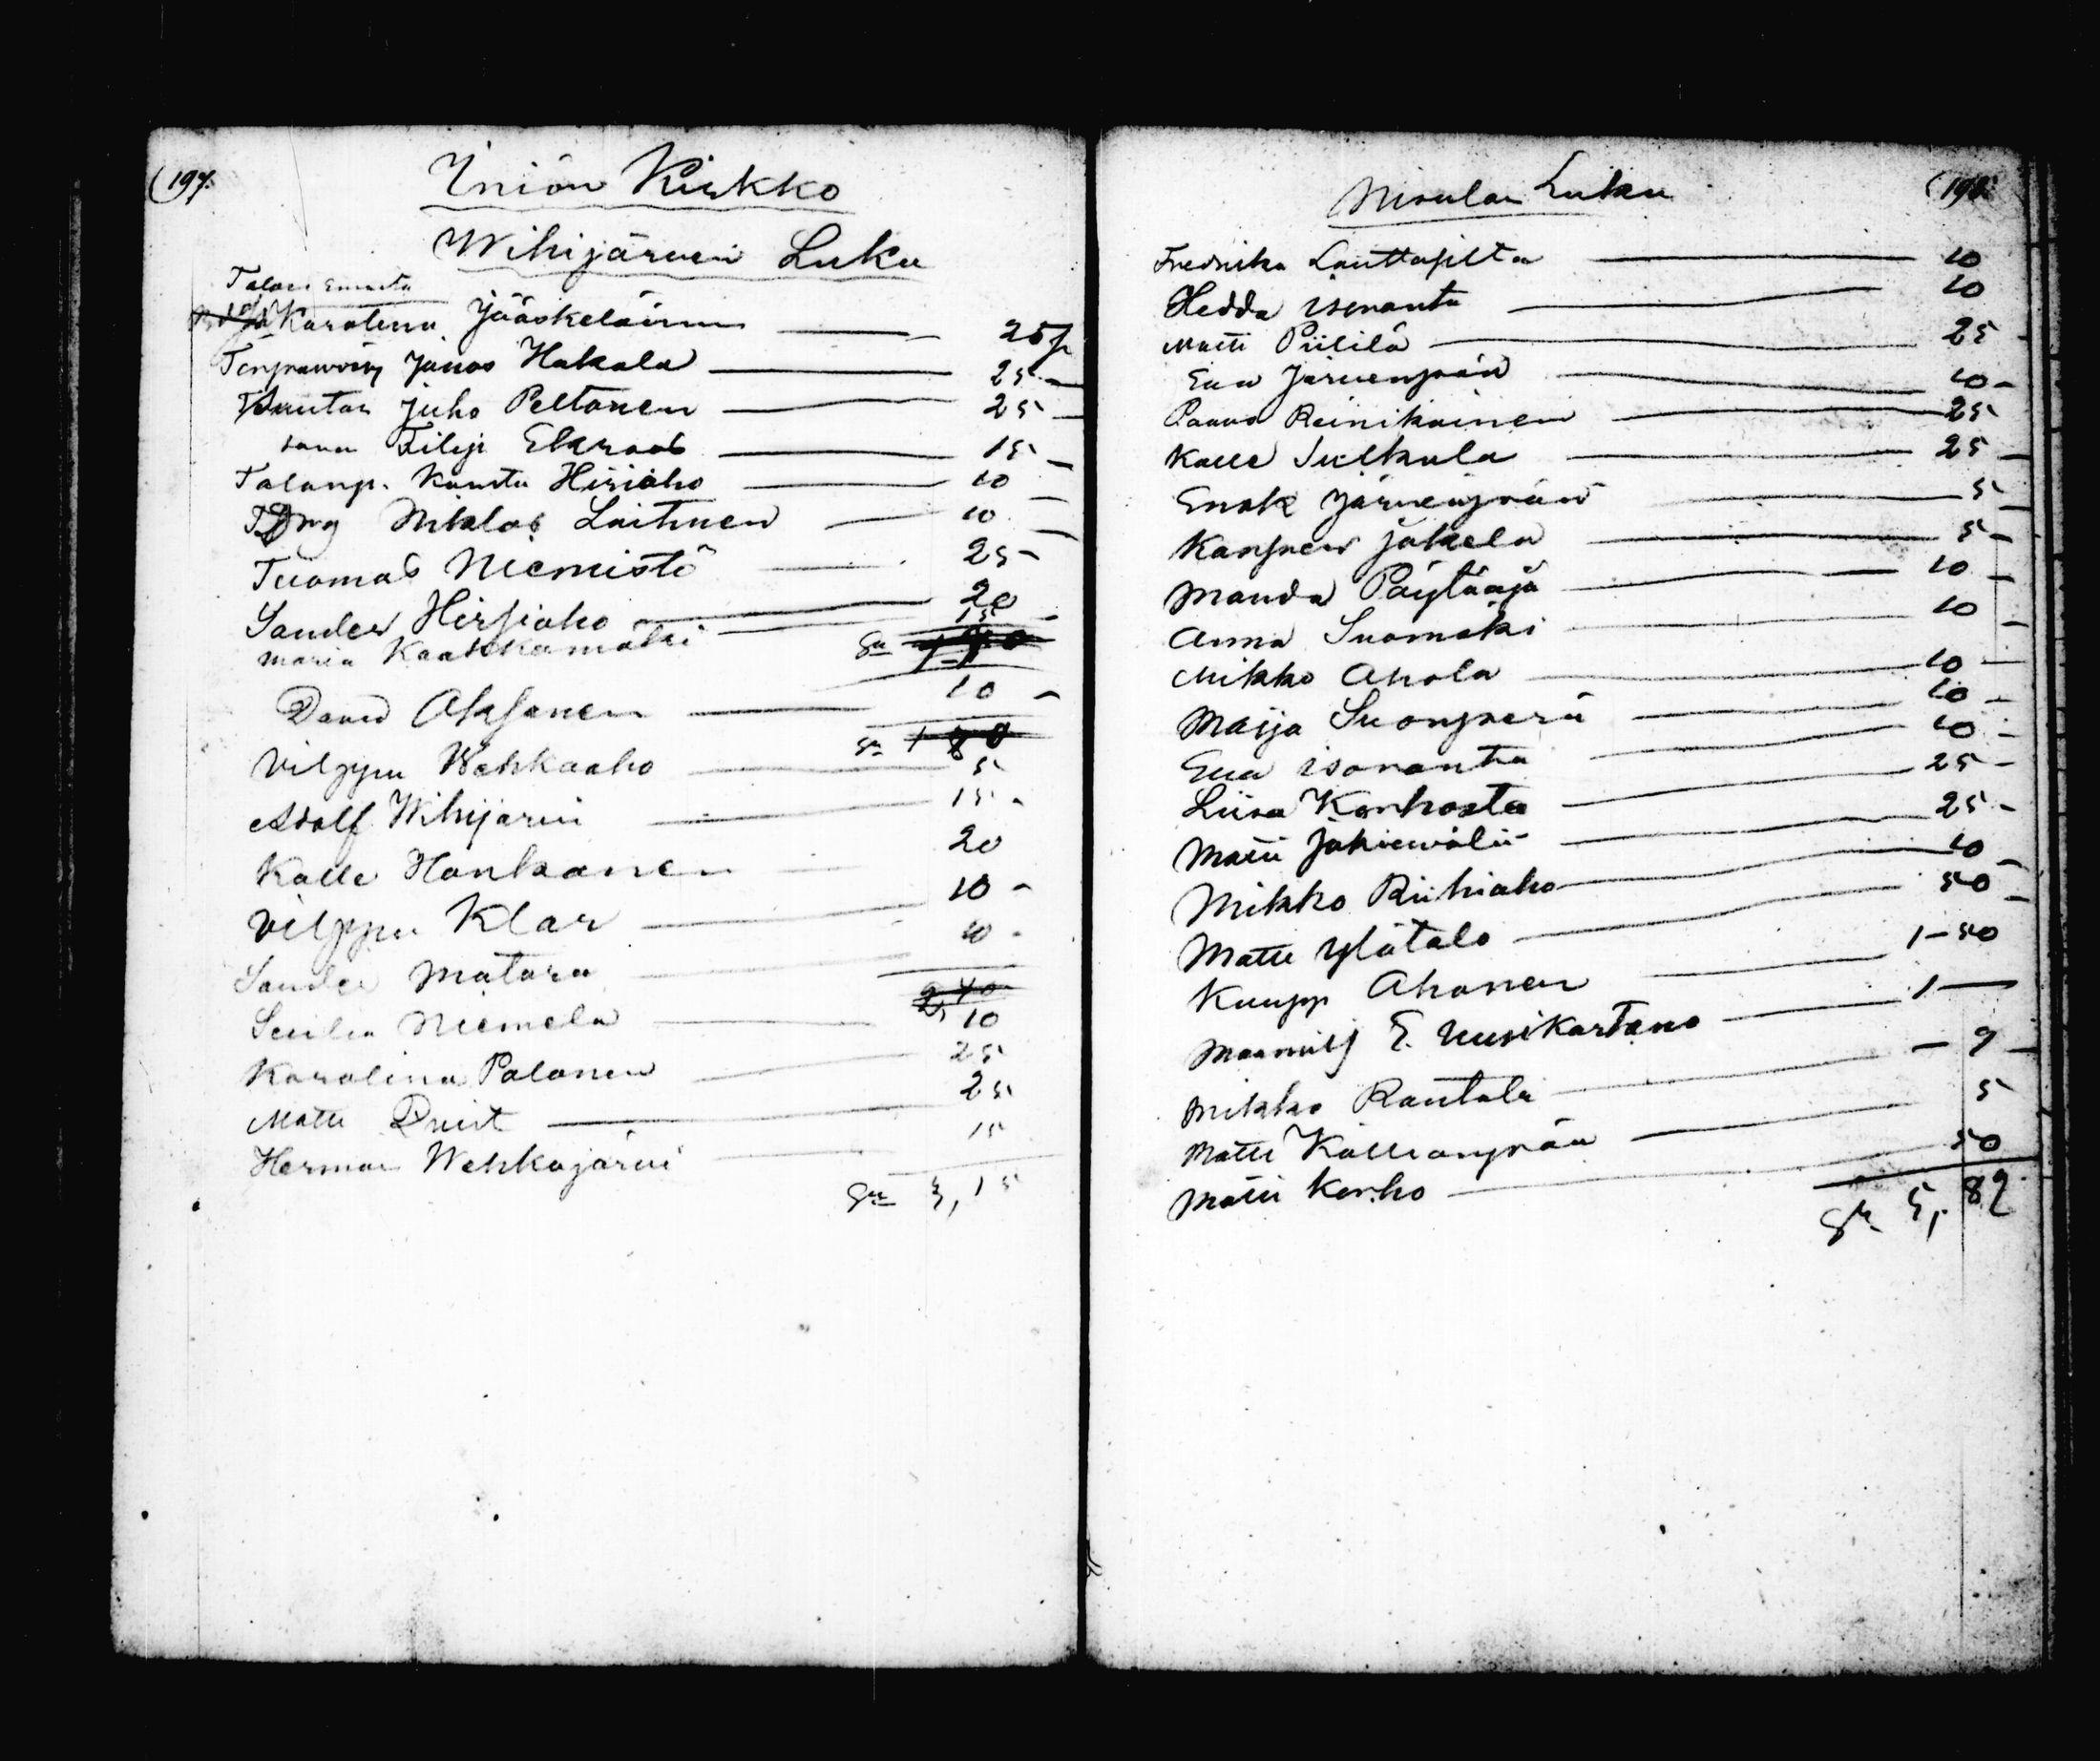 (197.
Ïniön Kirkko
Wihijärven Luku
Talon Emäntä
Karolina Jääskeläinen 25 p
Jonas Hakala 25 -
Juho Peltonen 25 -
sama Filip Ekroos 15 -
Talonp. Kaustu Hirsiaho 10
Niklas Laitinen 10
Tuomas Niemistö 25 -
Sander Hirsiaho 20
Maria Kaakkomäki 15 -
Sa
David Aksanen 10 -
Sa 1 80
Vilppu Wehkaaho 5
Adolf Wihijärvi 15 -
Kalle Honkanen 20
Vilppu Klar 10 -
Sander Matara 10 -
2,40
Niemelä 10
Karolina Palonen 25
Matti Qvist 25
Herman Wehkajärvi 15
Sa 3,15
(198.
Nisulan Luku
Fredrika Lauttasilta 10
Hedda Isoranta 10
Matti Piililä 25 -
Eeva Järvenpään 10 -
Paavo Reinikainen 25
Kalle Sulkula 25 -
Enok Järvenpään 5 -
Jokela 5 -
Manda Pöytääjä 10 -
Anna Suomäki 10 -
Mikko Ahola 10 -
Maija Suonperä 10 -
Eeva Isoranta 10 -
Liisa Korhosta 25 -
Matti 25 -
Mikko Riihiaho 10 -
Matti Ylätalo 50 -
Kaupp Ahonen 1 - 50
Maanvilj E. Uusikartano 1 —
Mikko Rantala — 7 -
Matti Kallionpään 5
Matti Korho 50
Sa 5,82